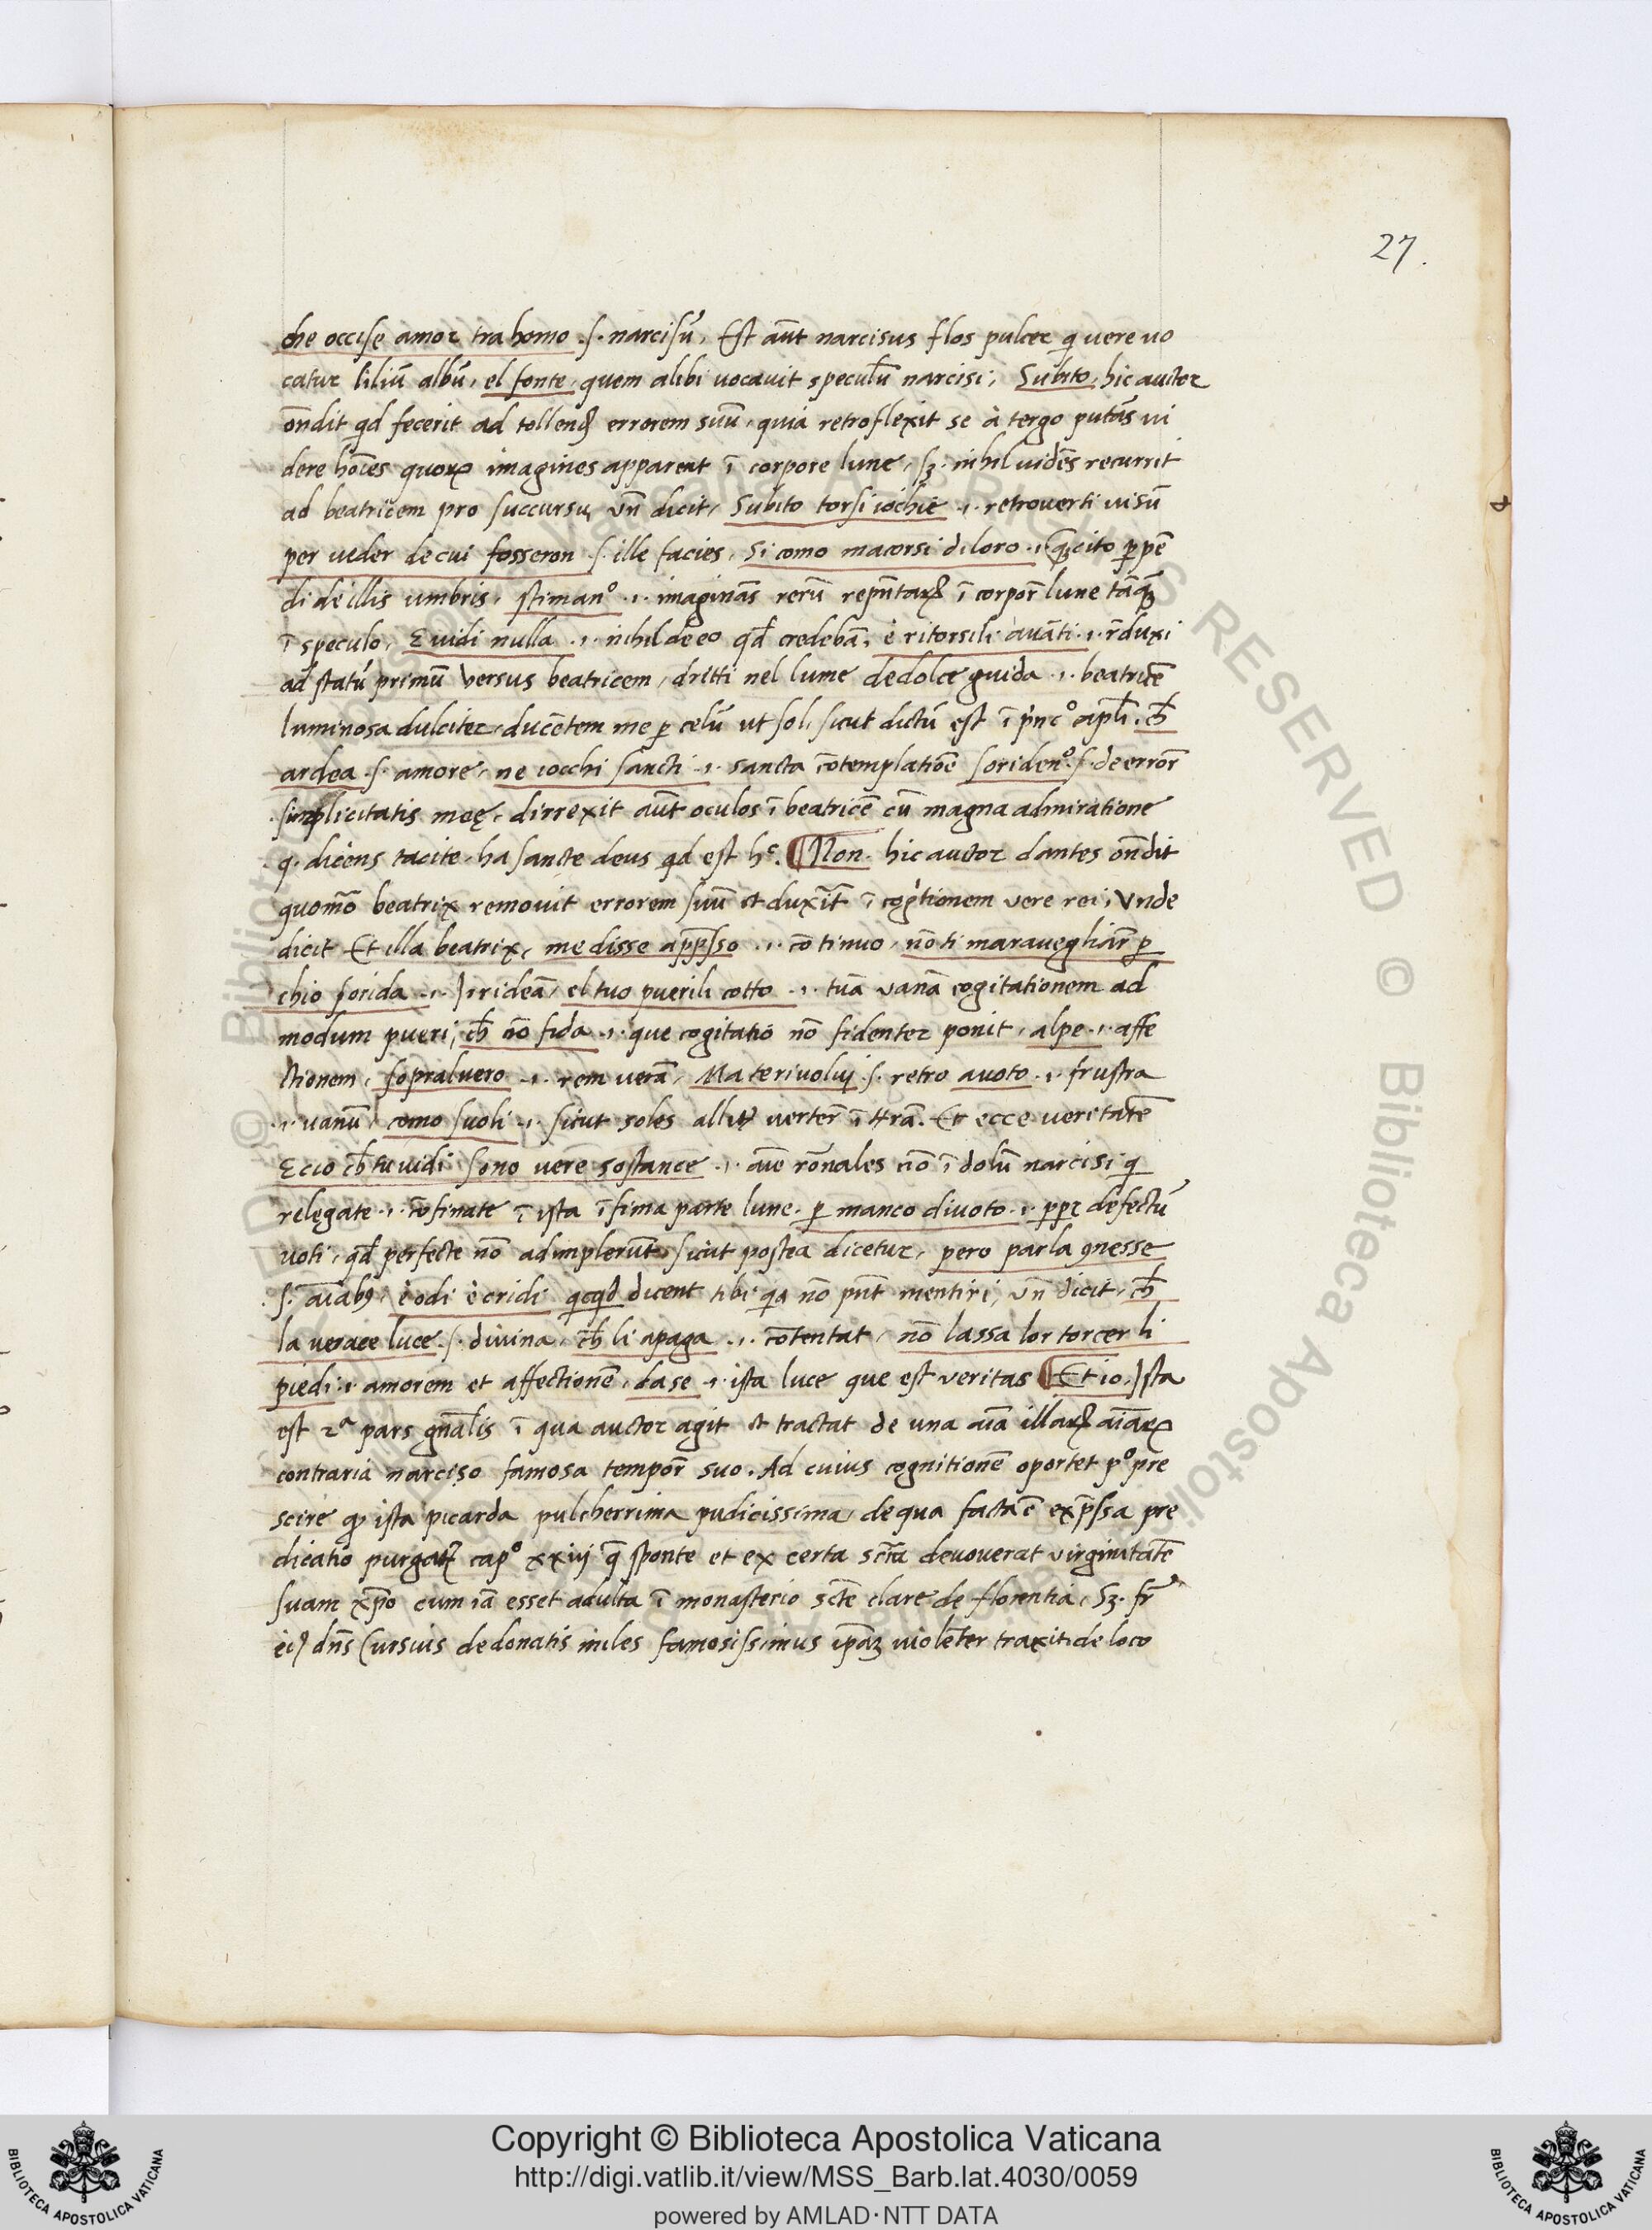 27.
che occise amor tra homo .ſ. narcisũ. Est aũt narcisus flos pulcer q̃ vere uo
catur liliũ albũ, el fonte, quem alibi uocavit speculũ narcisi, Subito, hic auctor
õndit qd fecerit ad tollenꝺ errorem suũ, quia retroflexit se à tergo putãs ui
dere hoĩes quoꝝ imagines apparent ĩ corpore lune, sꝫ nihil vidẽs recurrit
ad beatricem pro succursu, vñ dicit, Subito torsi iochie .ı. retroverti visũ
per veder de cui fosseron .ſ. ille facies, Si como macorsi di loro .ı. q̃ cito ꝑpẽ
di de illis umbris, stimanº .ı. imaginãs rerũ repñtaꝝ ĩ corpoř lune tãqꝫ
ĩ speculo, E vidi nulla .ı. nihil de eo qđ credebã, è ritorsili avãti .ı. r̃duxi
ad statũ primũ versus beatricem, dritti nel lume de dolce guida .ı. beatricẽ
luminosa dulciter, ducẽtem me ꝑ celũ ut sol, sicut dictũ est ĩ prĩncº capłi. cħ
ardea .ſ. amore, ne iocchi sancti .ı. sancta cõtemplatiõe soridenº .ſ. de erroř
simplicitatis meę, dirrexit aũt oculos ĩ beatricẽ cũ magna admiratione
q. dicens tacite, ha sancte deus qd est hᶜ. ¶ Non. hic auctor dantes õndit
quomõ beatrix removit errorem suũ et duxit ĩ cogĩtionem vere rei, Vnde
dicit Et illa beatrix, me disse app̃sso .ı. cõtinuo, nõ ti maravegliař ꝑ
chio sorida .ı. Irrideã, el tuo puerili cotto .ı. tuã vanã cogitationem ad
modum pueri, cħ nõ fida .ı. que cogitatio nõ fidenter ponit, alpe .ı. affe
ctionem, sopralvero .ı. rem verã, Ma te rivolvj .ſ. retro avoto .ı. frustra
.ı. vanũ, como suoli .ı. sicut soles alleꝝ verteř ĩ ttrã. Et ecce veritatẽ
E cio cħ tu vidi sono vere sostance .ı. aĩe rõnales nõ ĩdolũ narcisi q̃
relegate .ı. cõfinate ĩ ista ĩfima parte lune. ꝑ manco di voto .ı. ꝓpr̃ defectũ
voti, qđ perfecte nõ adimplerũt, sicut postea dicetur, pero parla ɔ nesse
.ſ. aĩabꝰ, è odi è cridi qcqđ dicent tibi qa nõ pñt mentiri, vñ dicit, cħ
la verace luce .ſ. divina, cħ li apaga .ı. cõtentat, nõ lassa lor torcer li
piedi .ı. amorem et affectionẽ, da se .ı. ista luce que est veritas ¶ Et io. Ista
est 2ª pars gñalis ĩ qua auctor agit et tractat de una aĩa illaꝝ aĩaꝝ
contraria narciso famosa tempoř suo. Ad cuius cognitionẽ oportet pº pre
scire ꝙ ista picarda pulcherrima pudicissima, de qua facta ẽ exp̃ssa pre
dicatio purgatꝝ capº xxiij q̃ sponte et ex certa sctã devoverat virginitatẽ
suam xp̃o cum iã esset adulta ĩ monasterio scte clare de florentia, Sꝫ. fr̃
eiꝰ dñs Cursuis de donatis miles famosissimus ip̃aꝫ violẽter traxit de loco
Copyright © Biblioteca Apostolica Vaticana
http://digi.vatlib.it/view/MSS_Barb.lat.4030/0059
powered by AMLAD·NTT DATA
BIBLIOTECA APOSTOLICA VATICANA
BIBLIOTECA APOSTOLICA VATICANA